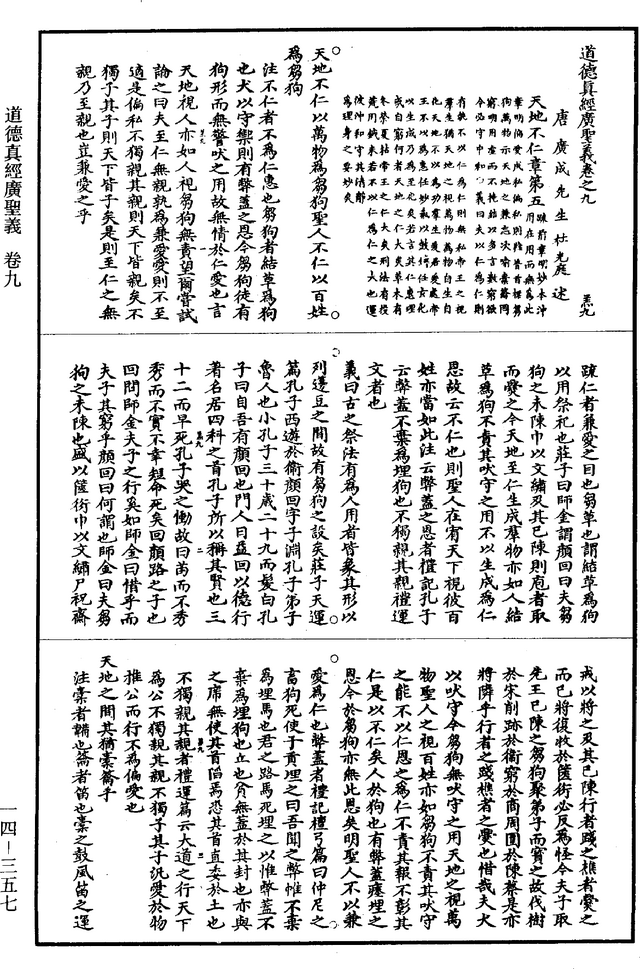 道德真經廣聖義卷之九
羔九
唐廣成先生杜光庭述
天地不仁章第五
天地不仁以萬物為芻狗聖人不仁以百姓
為芻狗
注不仁者不為仁惠也芻狗者結草為狗
也犬以守禦則有弊蓋之恩今芻狗徒有
狗形而無警吠之用故無情於仁愛也言
天地視人亦如人視芻狗無責望爾嘗試
論之曰夫至仁無親孰為兼愛愛則不至
適是偏私不獨親其親則天下皆親矣不
獨子其子則天下皆子矣是則至仁之無
親乃至親也豈兼愛之乎
疏仁者兼愛之目也芻草也謂結草為狗
以用祭祀也莊子曰師金謂顏回曰夫芻
狗之未陳巾以文繡及其已陳則庖者取
而愛之今天地至仁生成群物亦如人結
草為狗不責其吠守之用不以生成為仁
恩故云不仁也則聖人在宥天下視彼百
姓亦當如此注云弊蓋之恩者禮記孔子
云弊蓋不棄為埋狗也不獨親其親禮運
文者也
義曰古之祭法有為人用者皆象其形以
列邊豆之間故有芻狗之設矣莊子天運
篇孔子西遊於衛顏回字子淵孔子弟子
魯人也小孔子三十歲二十九而髮白孔
子曰自吾有顏回也門人日益回以德行
著名居四科之首孔子所以稱其賢也三
十二而早死孔子哭之慟故曰苗而不秀
秀而不實不幸短命死矣回顏路之子也
回問師金夫子之行奚如師金曰惜乎而
夫子其窮乎顏回曰何謂也師金曰夫芻
狗之未陳也盛以篋衍巾以文繡尸祝齋
戒以將之及其已陳行者踐之樵者爨之
而已將復收於篋衍必反為怪今夫子取
先王已陳之芻狗聚弟子而寶之故伐樹
於宋削跡於衛窮於商周圍於陳蔡是亦
將隣乎行者之踐樵者之爨也惜哉夫犬
以吠守今芻狗無吠守之用天地之視萬
物聖人之視百姓亦如芻狗不責其吠守
之能不以仁恩之為仁不責其報不彰其
仁是以不仁矣人於狗也有弊蓋瘞埋之
恩今於芻狗亦無此恩矣明聖人不以兼
愛為仁也弊蓋者禮記檀弓篇曰仲尼之
畜狗死使子貢埋之曰吾聞之弊帷不棄
為埋馬也君之路馬死埋之以帷弊蓋不
棄為埋狗也丘也貧無蓋於其封也亦與
之席無使其首陷焉恐其首直委於土也
不獨親其親者禮運篇云大道之行天下
為公不獨親其親不獨子其子汎愛於物
推公而行不為偏愛也
天地之間其猶橐籥乎
注橐者鞴也籥者笛也橐之鼓風笛之運
道德真經廣聖義 卷九
一四—三五七